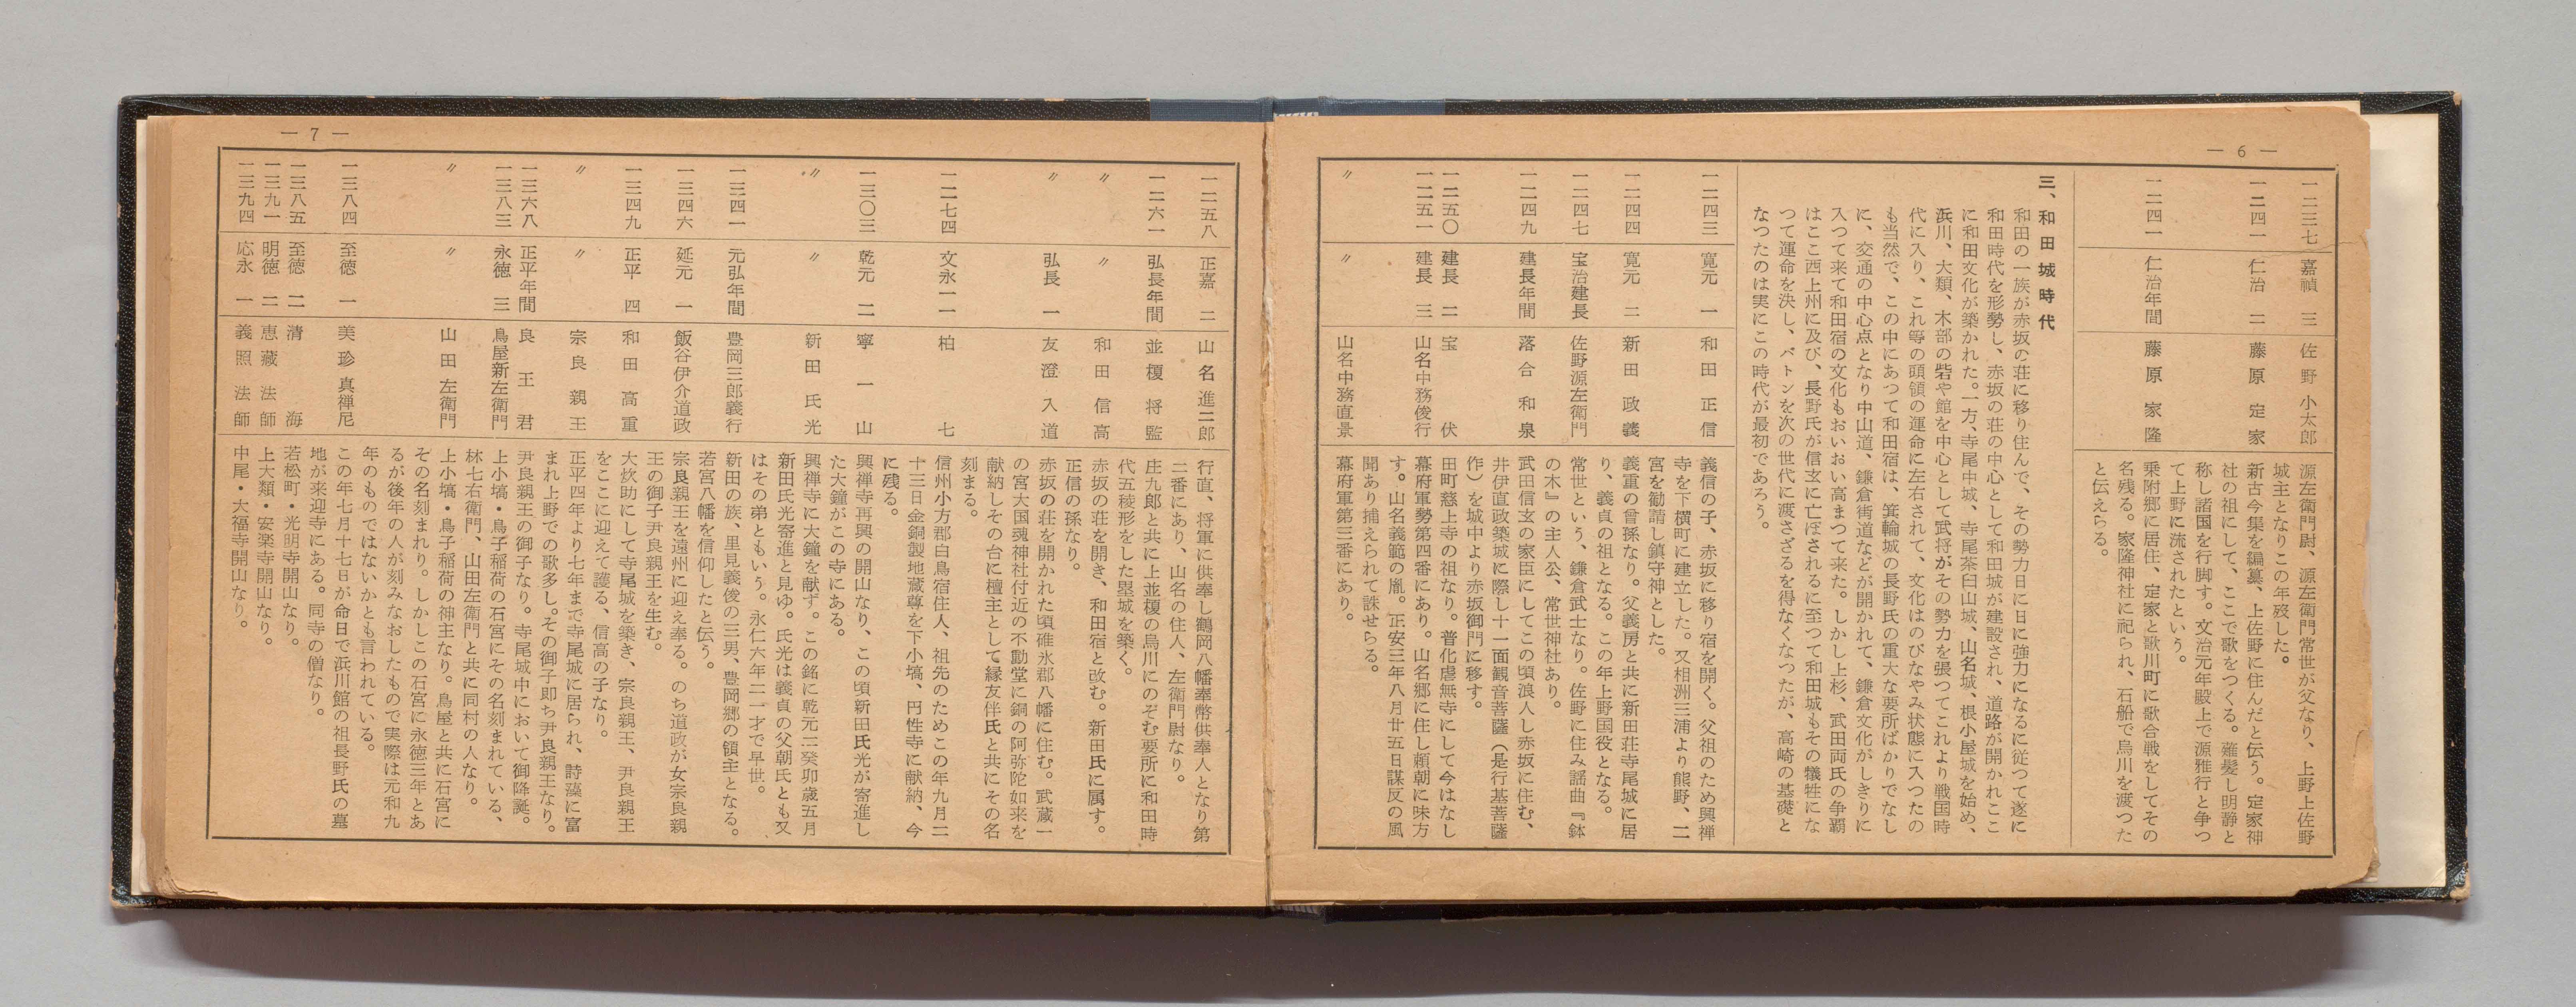 — 6 —
一二三七
嘉禎　三
佐野小太郎
源左衛門尉、源左衛門常世が父なり、上野上佐野
城主となりこの年歿した。
一二四一
仁治　二
藤原定家
新古今集を編纂、上佐野に住んだと伝う。定家神
社の祖にして、ここで歌をつくる。薙髪し明静と
称し諸国を行脚す。文治元年殿上で源雅行と争つ
て上野に流されたという。
一二四一
仁治年間
藤原家隆
乗附郷に居住、定家と歌川町に歌合戦をしてその
名残る。家隆神社に祀られ、石船で烏川を渡つた
と伝えらる。
三、和田城時代
和田の一族が赤坂の荘に移り住んで、その勢力日に日に強力になるに従つて遂に
和田時代を形勢し、赤坂の荘の中心として和田城が建設され、道路が開かれここ
に和田文化が築かれた。一方、寺尾中城、寺尾茶臼山城、山名城、根小屋城を始め、
浜川、大類、木部の砦や館を中心として武将がその勢力を張つてこれより戦国時
代に入り、これ等の頭領の運命に左右されて、文化はのびなやみ状態に入つたの
も当然で、この中にあつて和田宿は、箕輪城の長野氏の重大な要所ばかりでなし
に、交通の中心点となり中山道、鎌倉街道などが開かれて、鎌倉文化がしきりに
入つて来て和田宿の文化もおいおい高まつて来た。しかし上杉、武田両氏の争覇
はここ西上州に及び、長野氏が信玄に亡ぼされるに至つて和田城もその犠牲にな
つて運命を決し、バトンを次の世代に渡さざるを得なくなつたが、高崎の基礎と
なつたのは実にこの時代が最初であろう。
一二四三
寛元　一
和田正信
義信の子、赤坂に移り宿を開く。父祖のため興禅
寺を下横町に建立した。又相洲三浦より熊野、二
宮を勧請し鎮守神とした。
一二四四
寛元　二
新田政義
義重の曾孫なり。父義房と共に新田荘寺尾城に居
り、義貞の祖となる。この年上野国役となる。
一二四七
宝治建長
佐野源左衛門
常世という、鎌倉武士なり。佐野に住み謡曲『鉢
の木』の主人公、常世神社あり。
一二四九
建長年間
落合和泉
武田信玄の家臣にしてこの頃浪人し赤坂に住む、
井伊直政築城に際し十一面観音菩薩（是行基菩薩
作）を城中より赤坂御門に移す。
一二五〇
建長　二
宝伏
田町慈上寺の祖なり。普化虚無寺にして今はなし
一二五一
建長　三
山名中務俊行
幕府軍勢第四番にあり。山名郷に住し頼朝に味方
す。山名義範の胤。正安三年八月廿五日謀反の風
聞あり捕えられて誅せらる。
〃
〃
山名中務直景
幕府軍第三番にあり。
— 7 —
一二五八
正嘉　二
山名進二郎
行直、将軍に供奉し鶴岡八幡奉幣供奉人となり第
二番にあり、山名の住人、左衛門尉なり。
一二六一
弘長年間
並榎将監
庄九郎と共に上並榎の烏川にのぞむ要所に和田時
代五稜形をした塁城を築く。
〃
〃
和田信高
赤坂の荘を開き、和田宿と改む。新田氏に属す。
正信の孫なり。
〃
弘長　一
友澄入道
赤坂の荘を開かれた頃碓氷郡八幡に住む。武蔵一
の宮大国魂神社付近の不動堂に銅の阿弥陀如来を
献納しその台に檀主として縁友伴氏と共にその名
刻まる。
一二七四
文永一一
柏七
信州小方郡白鳥宿住人、祖先のためこの年九月二
十三日金銅製地蔵尊を下小塙、円性寺に献納、今
に残る。
一三〇三
乾元　二
寧一山
興禅寺再興の開山なり、この頃新田氏光が寄進し
た大鐘がこの寺にある。
〃
〃
新田氏光
興禅寺に大鐘を献ず。この銘に乾元二癸卯歳五月
新田氏光寄進と見ゆ。氏光は義貞の父朝氏とも又
はその弟ともいう。永仁六年二一才で早世。
一三四一
元弘年間
豊岡三郎義行
新田の族、里見義俊の三男、豊岡郷の領主となる。
若宮八幡を信仰したと伝う。
一三四六
延元　一
飯谷伊介道政
宗良親王を遠州に迎え奉る。のち道政が女宗良親
王の御子尹良親王を生む。
一三四九
正平　四
和田高重
大炊助にして寺尾城を築き、宗良親王、尹良親王
をここに迎えて護る、信高の子なり。
〃
〃
宗良親王
正平四年より七年まで寺尾城に居られ、詩藻に富
まれ上野での歌多し。その御子即ち尹良親王なり。
一三六八
正平年間
良王君
尹良親王の御子なり。寺尾城中において御降誕。
一三八三
永徳　三
鳥屋新左衛門
上小塙・鳥子稲荷の石宮にその名刻まれている、
林七右衛門、山田左衛門と共に同村の人なり。
〃
〃
山田左衛門
上小塙・鳥子稲荷の神主なり。鳥屋と共に石宮に
その名刻まれり。しかしこの石宮に永徳三年とあ
るが後年の人が刻みなおしたもので実際は元和九
年のものではないかとも言われている。
一三八四
至徳　一
美珍真禅尼
この年七月十七日が命日で浜川館の祖長野氏の墓
地が来迎寺にある。同寺の僧なり。
一三八五
至徳　二
清海
若松町・光明寺開山なり。
一三九一
明徳　二
恵蔵法師
上大類・安楽寺開山なり。
一三九四
応永　一
義照法師
中尾・大福寺開山なり。